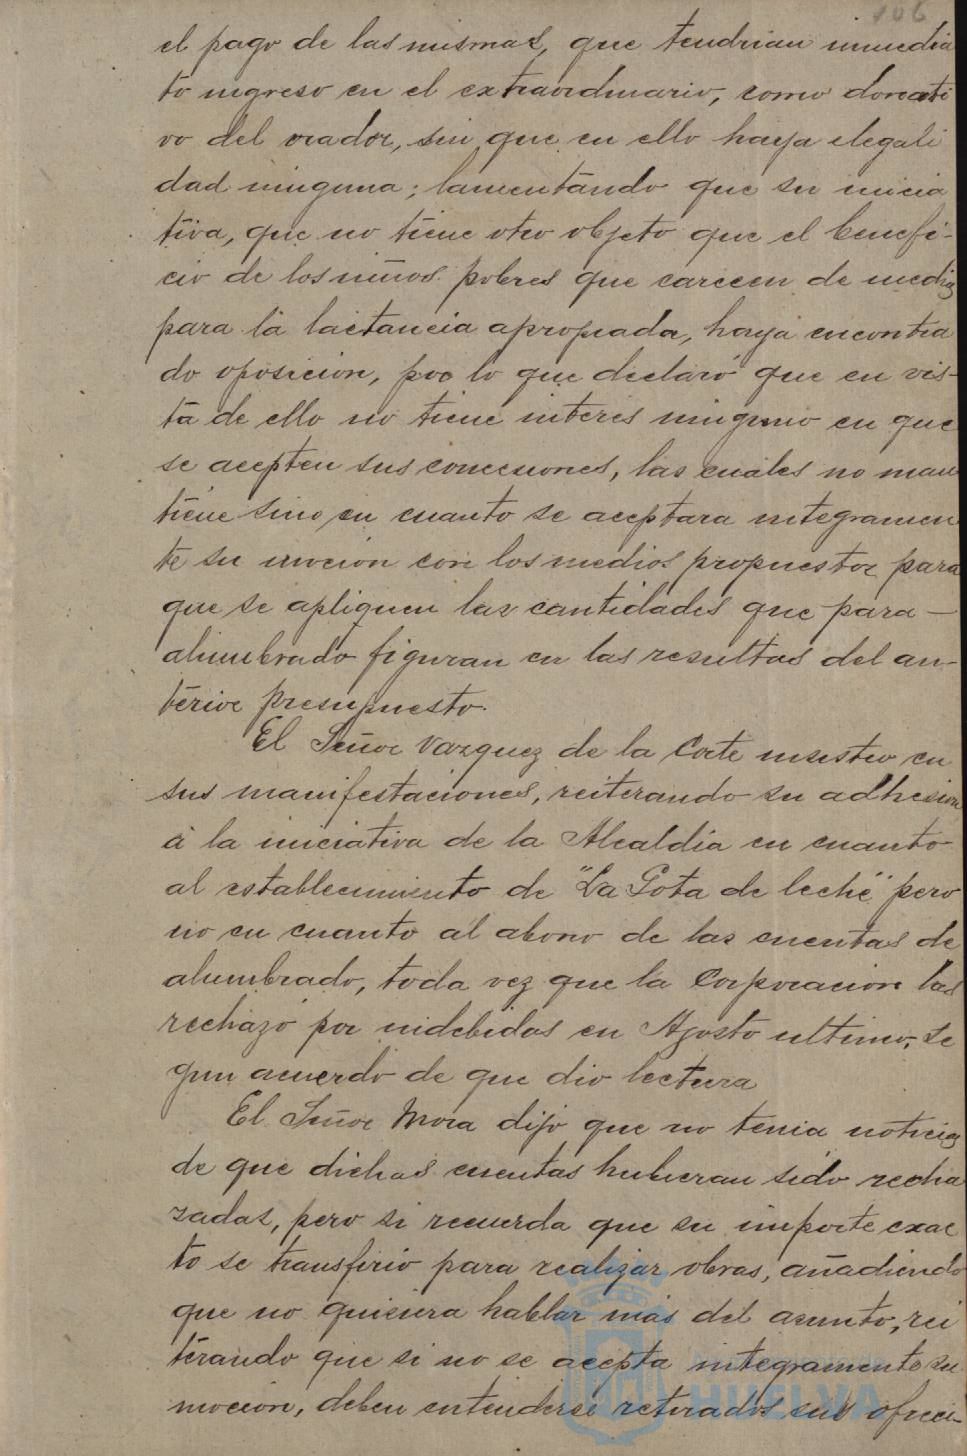 106
el pago de las mismas, que tendrian inmedia
to ingreso en el extraordinario, como donati
vo del orador, sin que en ello haya ilegali
dad ninguna; lamentando que su inicia
tiva, que no tiene otro objeto que el benefi-
cio de los niños pobres que carecen de medios
para la lactancia apropiada, haya encontra
do oposicion, por lo que declaró que en vis-
ta de ello no tiene interes ninguno en que
se acepten sus concesiones, las cuales no man
tiene sino en cuanto se aceptara integramen
te su mocion con los medios propuestos para
que se apliquen las cantidades que para —
alumbrado figuran en las resultas del an-
terior presupuesto.
El Señor Vazquez de la Corte insistio en
sus manifestaciones, reiterando su adhesion
á la iniciativa de la Alcaldia en cuanto
al establecimiento de "La Gota de leche" pero
no en cuanto al abono de las cuentas de
alumbrado, toda vez que la Corporacion las
rechazó por indebidas en Agosto ultimo, se
gun acuerdo de que dio lectura
El Señor Mora dijo que no tenia noticias
de que dichas cuentas hubieran sido recha
zadas, pero si recuerda que su importe exac
to se transfirió para realizar obras, añadiendo
que no quisiera hablar más del asunto, rei
terando que si no se acepta integramente su
mocion, deben entenderse retirados sus ofreci-
HUELVA